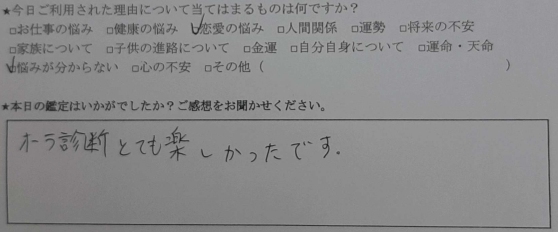 ★今日ご利用された理由について当てはまるものは何ですか？
□お仕事の悩み □健康の悩み ☑恋愛の悩み □人間関係 □運勢 □将来の不安
□家族について □子供の進路について □金運 □自分自身について □運命・天命
☑悩みが分からない □心の不安 □その他（ ）
★本日の鑑定はいかがでしたか？ご感想をお聞かせください。
オーラ診断とても楽しかったです。